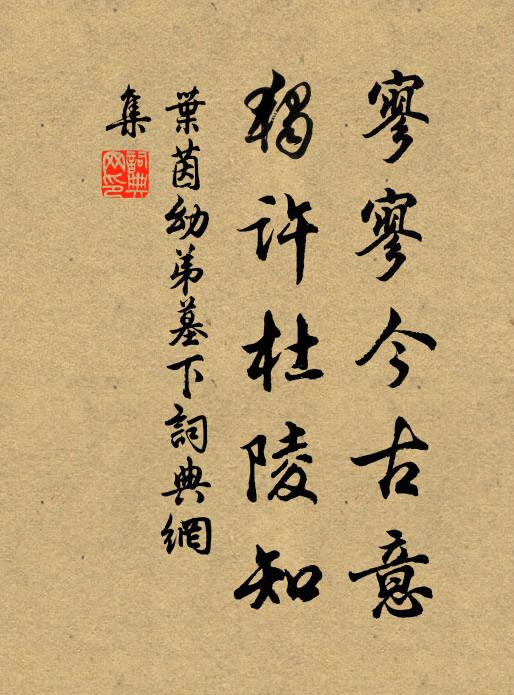 寥寥今古意
獨許杜陵知
葉茵幼弟墓下詞典網
集
詞典網印